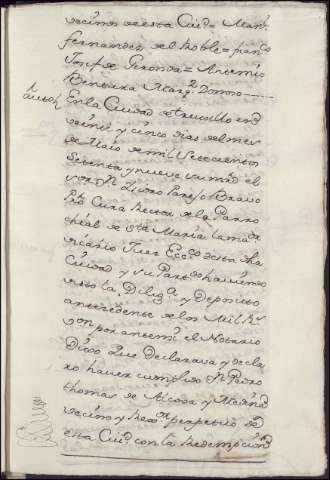 vecinos de esta Ciud.d Man.l
fernandez de el Roble = fran.co
Josef de Gironda = Antemio
Bentura Marq.z Donoso
Auto
En la Ciudad de truxillo en
veinte y cinco dias del mes
de Maio de mil Setecientos
Setenta y nueve su mrd el
s.or D.n Pedro Parejo Bravo
Pbro Cura Rector de la Parro
chial de S.ta Maria la maior
vicario Juez Ecc.co de esta dha
Ciudad y su Part.do haviendo
visto la Dilig.a y Deposito
antecedente de los Mil Rs.
von por antemi el Notario
Dijo que Declarava y decla
ro haver cumplido D.n Pedro
thomas de Alcosa y
vecino y perpetuo de
esta Ciud. con la Redempcion